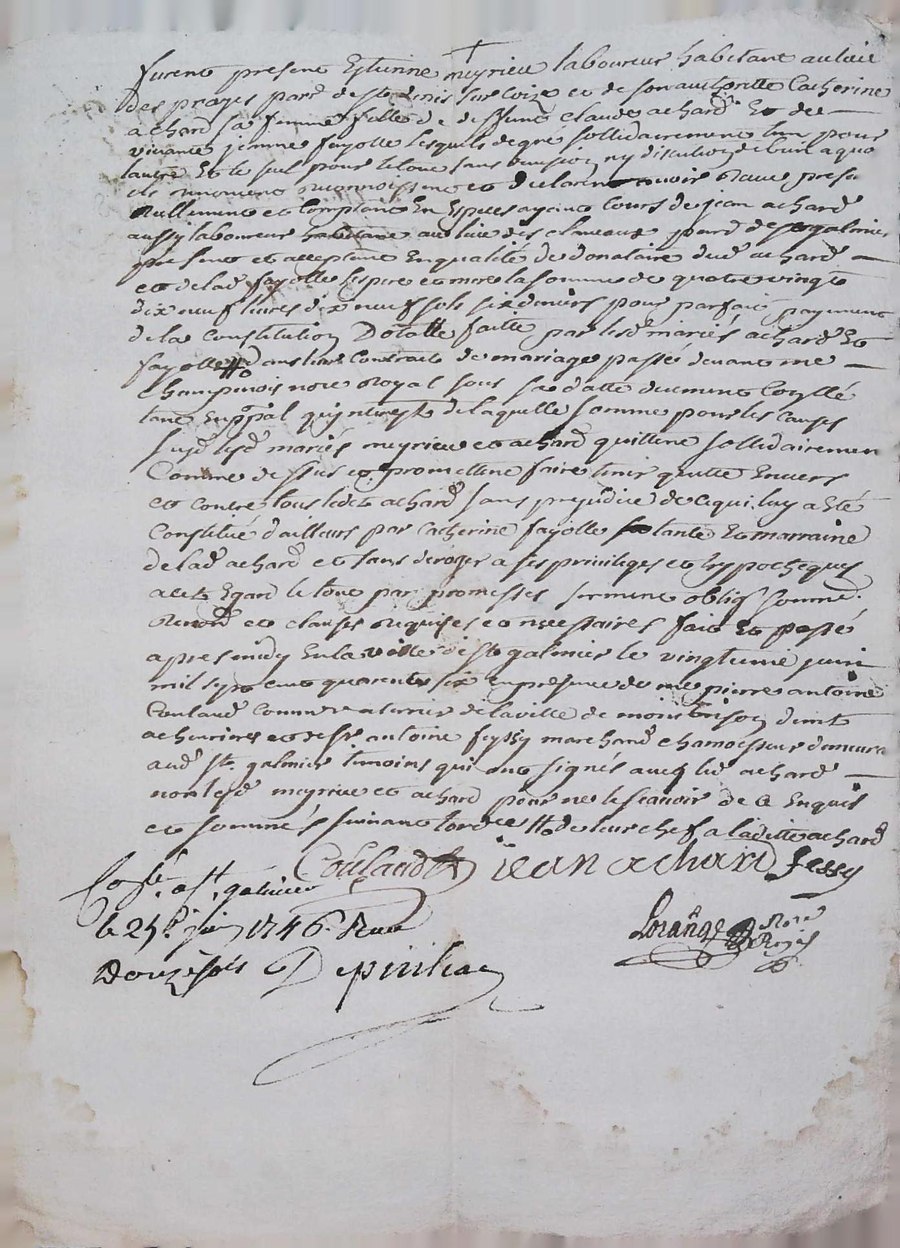 furent present Estienne meyrieu laboureur habitant au lieu
des proges parr. de st denis sur Coize et de son authoritte Catherine
achard sa femme fille de deffunt Claude achard Et de
vivante jeanne fayolle lesquels de gré sollidairement lun pour
lautre Et le seul pour le tout sans division ny discution
reconnoissent et declarent avoir Reçu
Reellement et Comptant En Especes ayant Cours de jean achard
aussy laboureur habitant au lieu des clavaux parr. de st galmier
present et acceptant En qualité de donataire dud. achard
et de lad. fayolle ses pere et mere la somme de quatre vingt
dix neuf livres dix neuf sols six deniers pour parfait payement
de la Constitution Dotalle faitte par lesd. mariés achard Et
fayolle dans leur Contract de mariage passé devant me
Champinois nore Royal sous sa datte deument Conllé
de laquelle somme pour les Causes
susd. lesd. mariés meyrieu et achard quittent sollidairement
Comme dessus et promettent faire tenir quitte Envers
et contre tous ledit achard sans prejudice de ce qui luy a Eté
Constitué d'ailleurs par Catherine fayolle sa tante Et marraine
de lad. achard et sans deroger a ses privileges et hypotheques
a cet Egard le tout par promesses serment oblig.
Renon. et clauses requises et necessaires fait Et passé
apres midy En la ville de st galmier le vingtunie juin
mil sept cent quarente six en presence de me pierre antoine
Coulaud de la ville de montbrison
et sr antoine feyssy marchand chamoisseur demeurant
aud. st galmier temoins qui ont signés avec led. achard
non lesd. meyrieu et achard pour ne le scavoir de ce Enquis
et sommés suivant lord.ce de leur chef a laditte achard
Coulaud jean achard fessy
Coné. a st. galmier
le 25e juin 1746. Reçu
Douze sols Depinhac
Lorange Nore Royal